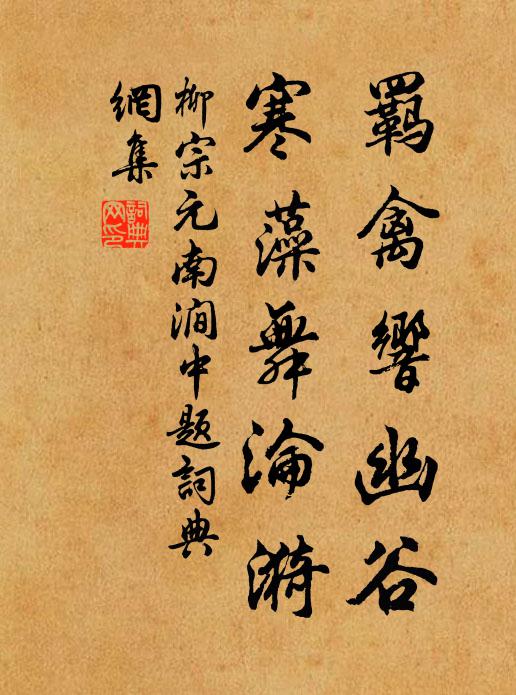 羈禽響幽谷
寒藻舞淪漪
柳宗元南澗中題詞典
網集
詞典
網印